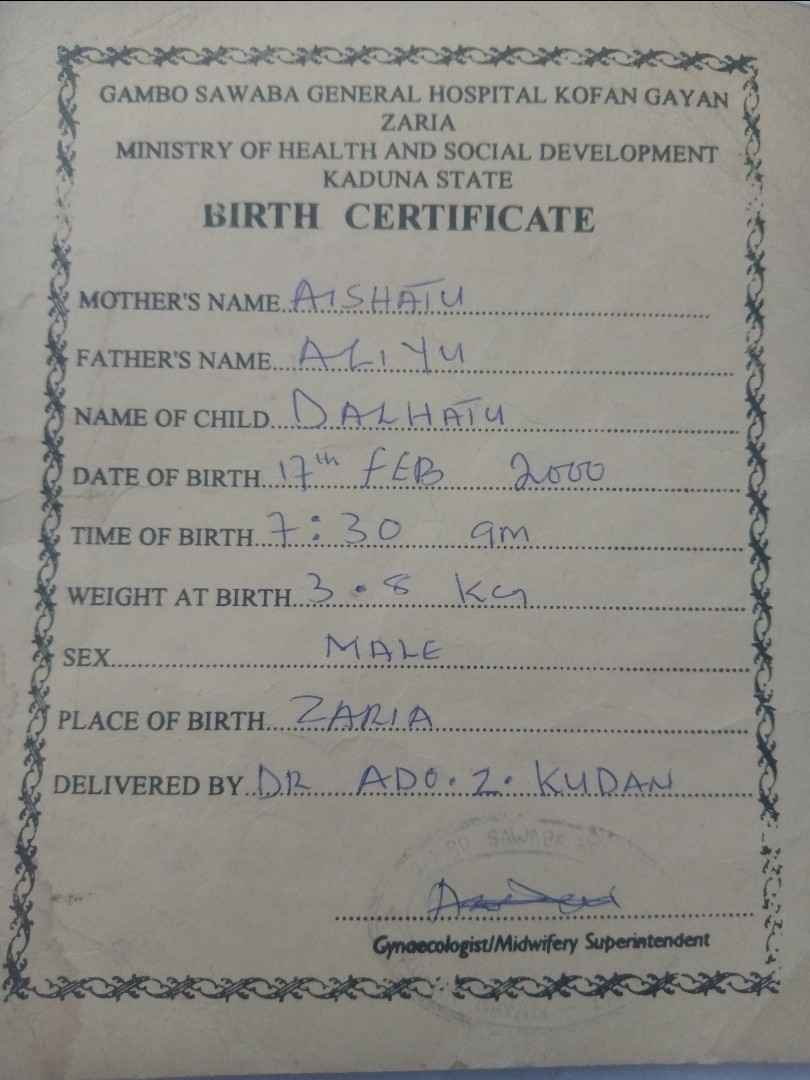 GAMBO SAWABA GENERAL HOSPITAL KOFAN GAYAN
ZARIA
MINISTRY OF HEALTH AND SOCIAL DEVELOPMENT
KADUNA STATE
BIRTH CERTIFICATE
MOTHER'S NAME AISHATU
FATHER'S NAME ALIYU
NAME OF CHILD DALHATU
DATE OF BIRTH 17th FEB 2000
TIME OF BIRTH 7:30 am
WEIGHT AT BIRTH 3.8 KG
SEX MALE
PLACE OF BIRTH ZARIA
DELIVERED BY DR ADO. Z. KUDAN
SAWABA
Gynaecologist/Midwifery Superintendent